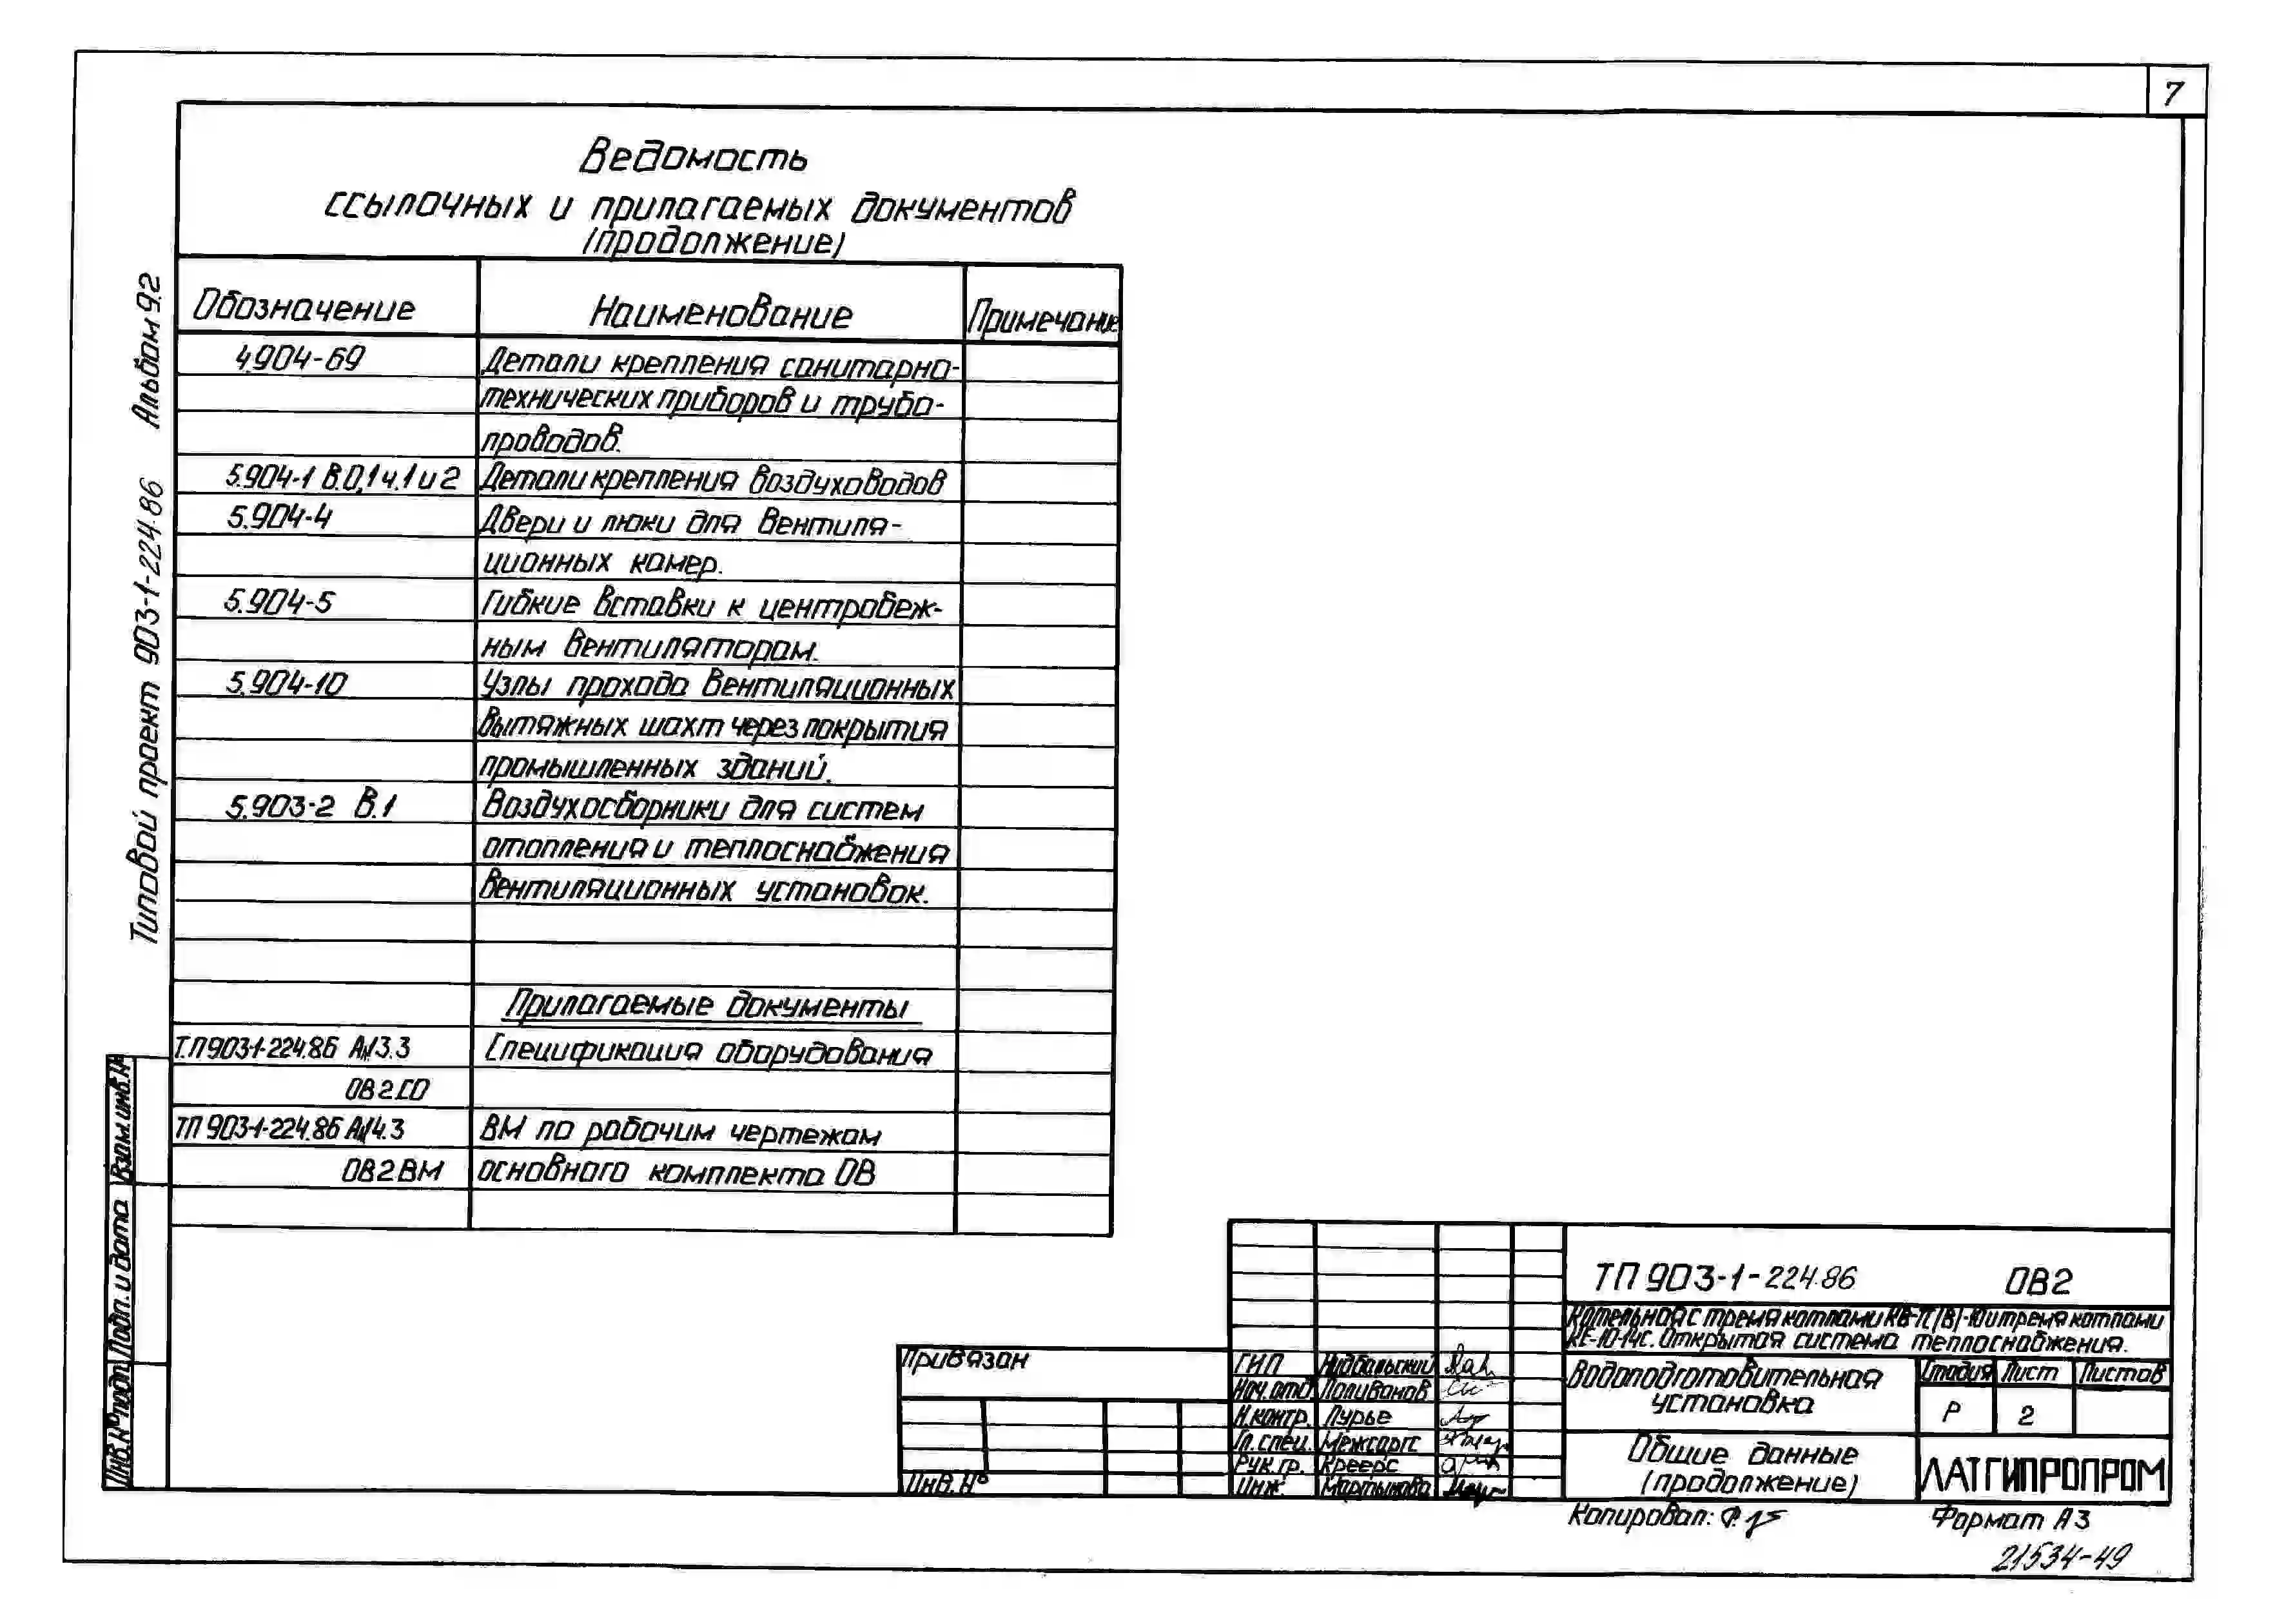 7
Ведомость
ссылочных и прилагаемых документов
(продолжение)
Обозначение Наименование Примечание
4.904-69 Детали крепления санитарно-
технических приборов и трубо-
проводов.
5.904-1 В.0,1 ч.1 и 2 Детали крепления воздуховодов
5.904-4 Двери и люки для вентиля-
ционных камер.
5.904-5 Гибкие вставки к центробеж-
ным вентиляторам.
5.904-10 Узлы прохода вентиляционных
вытяжных шахт через покрытия
промышленных зданий.
5.903-2 В.1 Воздухосборники для систем
отопления и теплоснабжения
вентиляционных установок.
Прилагаемые документы
Т.П 903-1-224.86 Ал13.3 Спецификация оборудования
ОВ2СО
ТП 903-1-224.86 Ал14.3 ВМ по рабочим чертежам
ОВ2ВМ основного комплекта ОВ
Типовой проект 903-1-224.86 Альбом 9.2
Взам.инв.№
Подп. и дата
Инв.№ подп.
Привязан
Инв.№
ГИП Нидбальский
Нач.отд Поливанов
Н.контр. Лурье
Гл.спец. Межсаргс
Рук.гр. Креерс
Инж. Мартынова
ТП 903-1-224.86 ОВ2
Котельная с тремя котлами КВ-ТС(В)-10 и тремя котлами
КЕ-10-14с. Открытая система теплоснабжения.
Водоподготовительная
установка
Стадия Лист Листов
Р 2
Общие данные
(продолжение)
ЛАТГИПРОПРОМ
Копировал:
Формат А3
21534-49